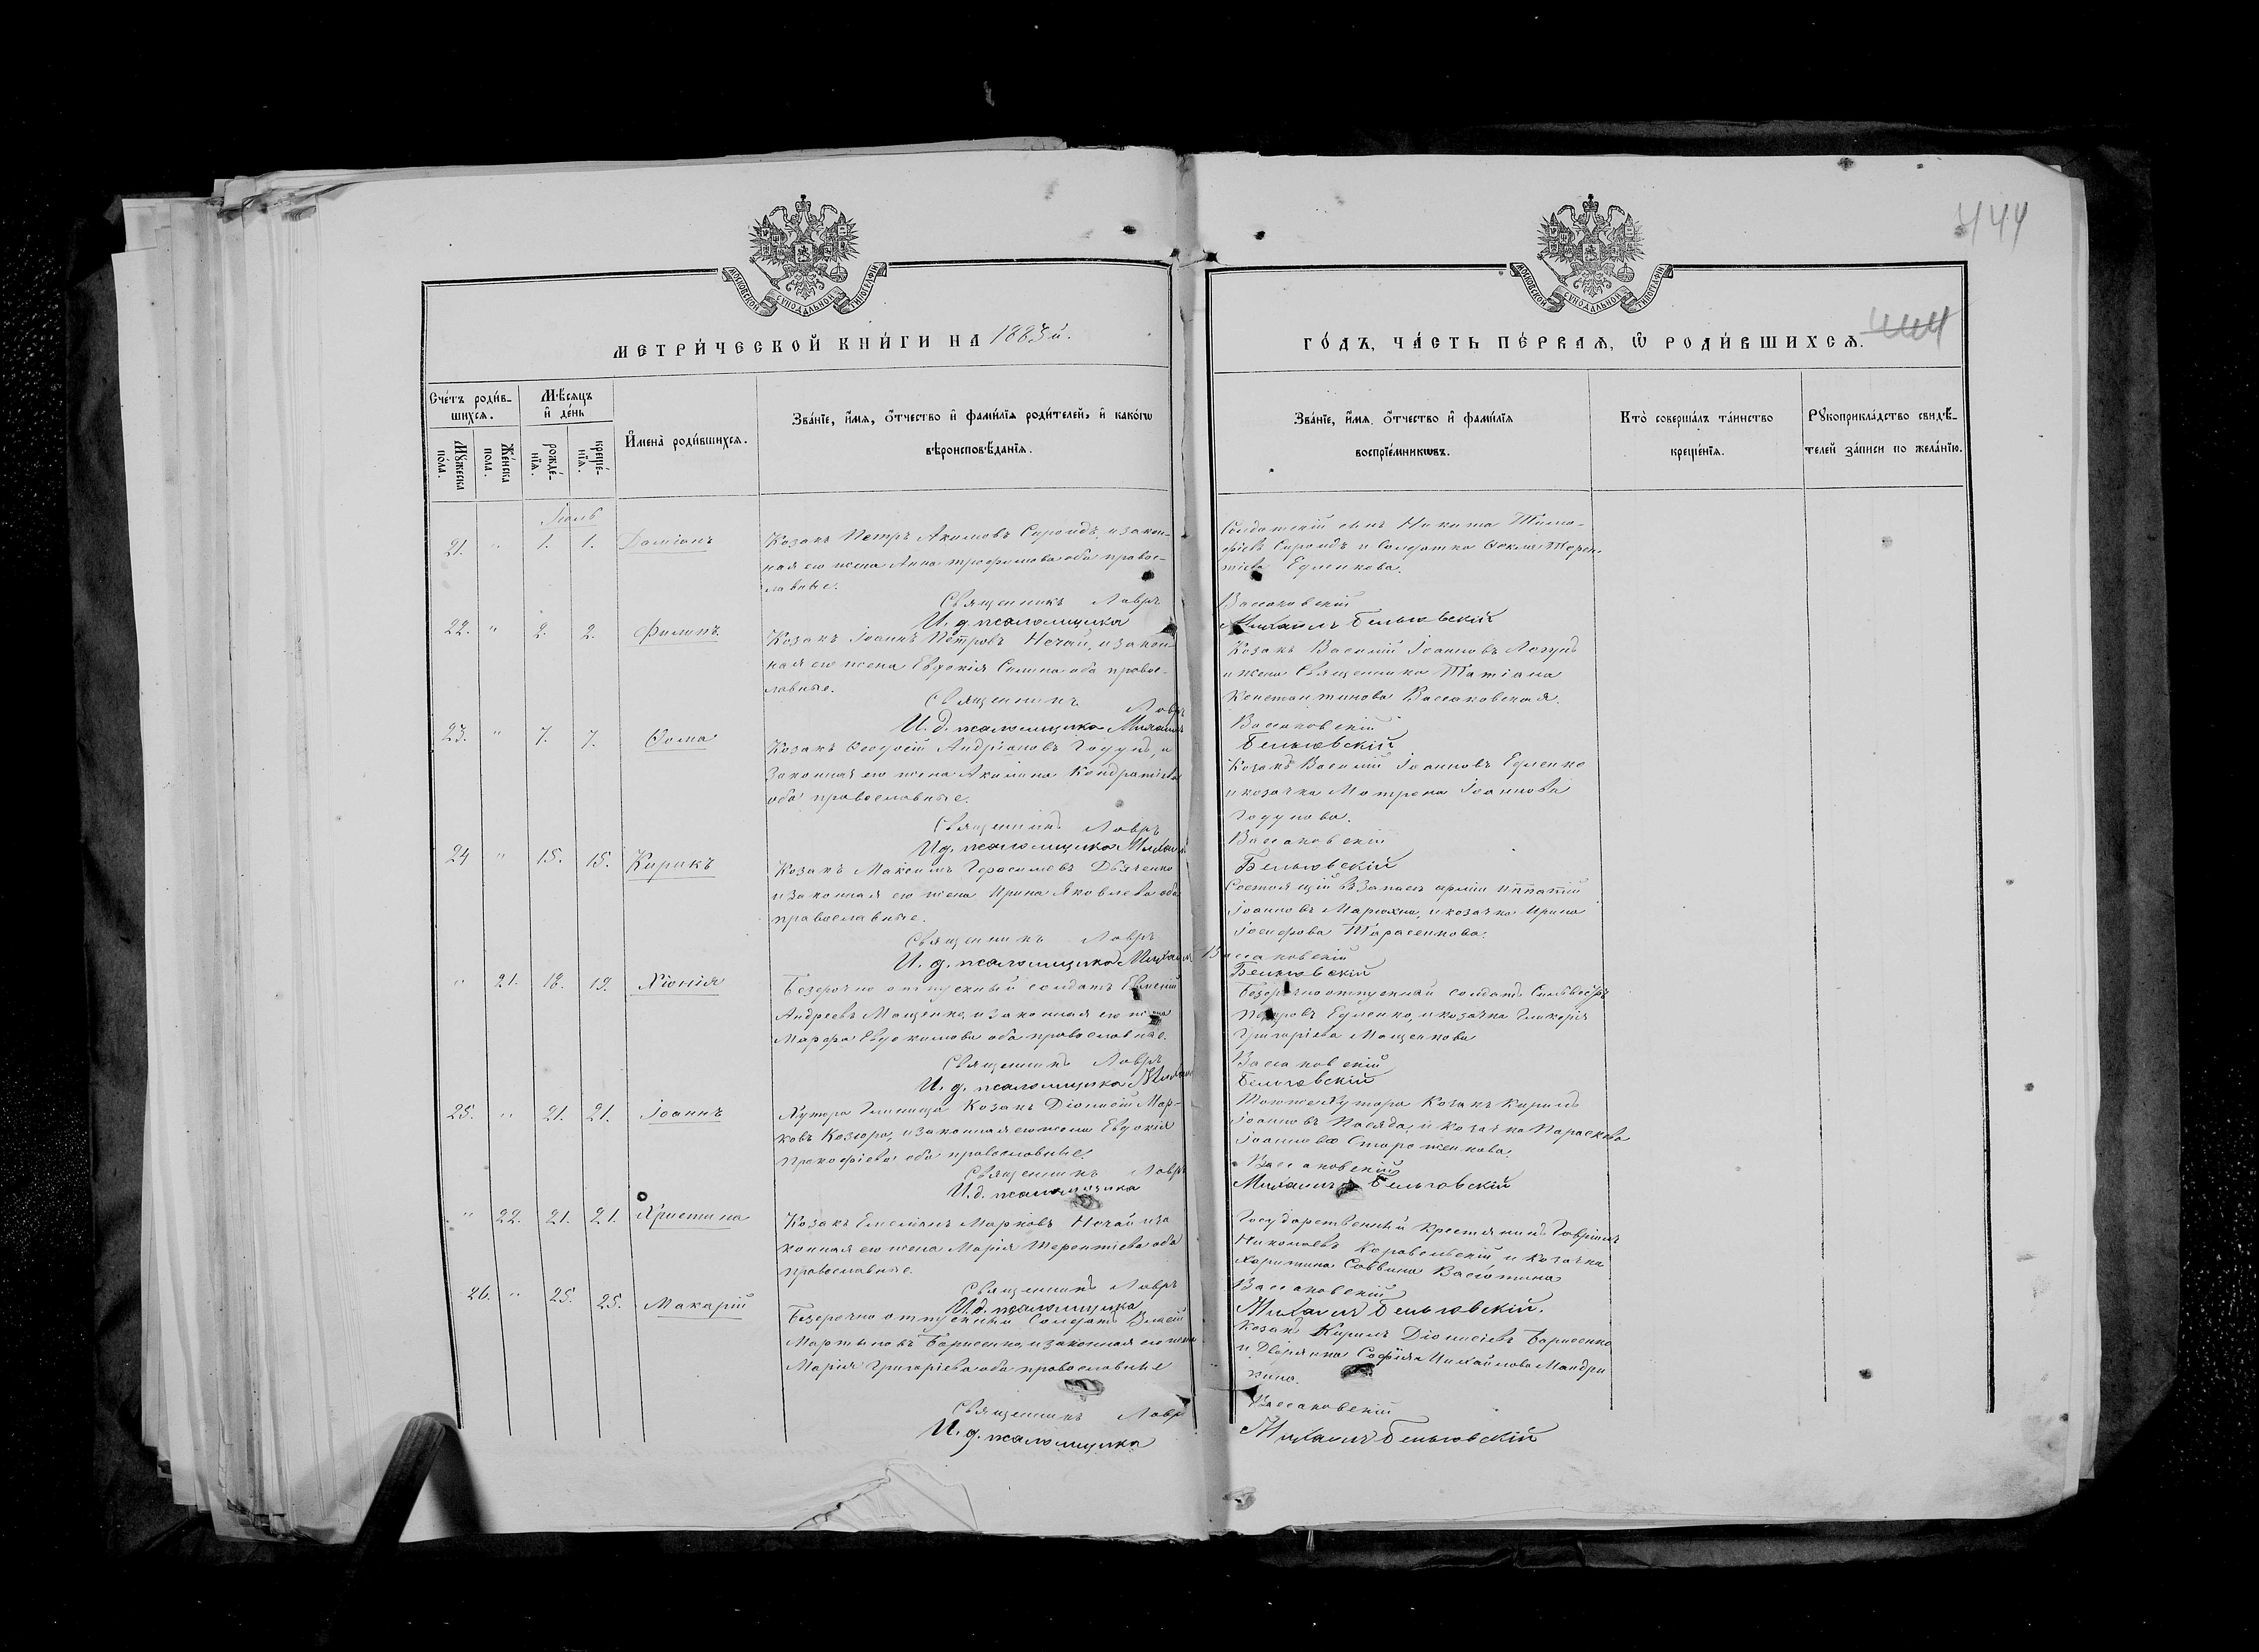 444
МОСКОВСКОЙ СУНОДАЛЬНОЙ ТИПОГРАФІИ
МОСКОВСКОЙ СУНОДАЛЬНОЙ ТИПОГРАФІИ
МЕТРИ́ЧЕСКОЙ КНИ́ГИ НА 1883й.
ГО́ДЪ, ЧА́СТЬ ПЕ́РВАѦ, Ѽ РОДИ́ВШИХСѦ.
Сче́тъ роди́в-
шихсѧ.
Мꙋ́жеска по́ла.
Же́нска пола.
Мѣ́сѧцъ
и҆ де́нь
рожде́-нїѧ.
креще́-нїѧ.
И҆мена̀ роди́вшихсѧ.
Зва́нїе, и҆́мѧ, ѻ҆́тчество и҆ фами́лїѧ роди́телей, и҆ како́гѡ
вѣроисповѣ́данїѧ.
Зва́нїе, и҆́мѧ, ѻ҆́тчество и҆ фами́лїѧ
воспрїе́мникѡвъ.
Кто̀ соверша́лъ та́инство
креще́нїѧ.
Рꙋкоприкла́дство свидѣ́-
телей за́писи по жела́нїю.
Іюль
21. " 1. 1. Даміанъ
Козакъ Петръ Акимовъ Сыроидъ, и закон-
ная его жена Анна Трофимова оба правос-
лавные.
Солдатскій сынъ Никита Тимо-
фіевъ Сыроидъ и Солдатка Ѳекла Терен-
тіева Едленкова.
Священникъ Лавръ
Вассаковскій
И. д. псаломщика
Михаилъ Бельговскій
22. " 2. 2. Филипъ
Козакъ Іоаннъ Петровъ Нечай, и закон-
ная его жена Евдокія Силина оба правос-
лавные.
Козакъ Василій Іоанновъ
и жена Священника Татіана
Константинова Вассаковская.
Священникъ Лавръ
Вассаковскій
И. д. псаломщика Михаилъ
Бельговскій
23. " 7. 7. Ѳома
Козакъ Ѳеодосій Андріановъ Годунъ, и
законная его жена Акилина Кондратіева
оба православные.
Козакъ Василій Іоанновъ Едленко
и козачка Матрона Іоаннова
Годунова.
Священникъ Лавръ
Вассаковскій
И. д. псаломщика Михаилъ
Бельговскій
24 " 15. 15. Кирикъ
Козакъ Максимъ Герасимовъ Дьяченко
и законная его жена Ирина Яковлева оба
православные.
Состоящій въ запасѣ арміи Иппатій
Іоанновъ Марюхна, и козачка Ирина
Іосифова Тарасенкова.
Священникъ Лавръ
Вассаковскій
И. д. псаломщика Михаилъ
Бельговскій
" 21. 18. 19. Хіонія
Безсрочно отпускный солдатъ Евменій
Андреевъ Мащенко, и законная его жена
Марфа Евдокимова оба православные.
Безсрочноотпускный солдатъ Сильвестръ
Петровъ Едленко, и козачка Гликерія
Григорієва Мащенкова
Священникъ Лавръ
Вассаковскій
И. д. псаломщика Михаилъ
Бельговскій
25. " 21. 21. Іоаннъ
Хутора Глинища Козакъ Діонисій Мар-
ковъ Козюра, и законная его жена Евдокія
Прокофіева оба православные.
Тогоже Хутора Козакъ Кирилъ
Іоанновъ и козачка Параскева
Іоаннова Стороженкова.
Священникъ Лавръ
Вассаковскій
И. д. псаломщика
Михаилъ Бельговскій
" 22. 21. 21. Христина
Козакъ Емеліанъ Марковъ Нечай и за
конная его жена Марія Терентіева оба
православные.
Государственный крестьянинъ Гавріилъ
Николаевъ Коравельскій и козачка
Харитина Саввина
Священникъ Лавръ
Вассаковскій
И. д. псаломщика
Михаилъ Бельговскій.
26. " 25. 25. Макарій
Безсрочно отпускный Солдатъ Власій
Мартыновъ Борисенко, и законная его жена
Марія Григоріева оба православные
Козакъ Кирилъ Діонисіевъ Борисенко
и Дворянка Софія Михайлова Мандри
кина.
Священникъ Лавръ
Вассаковскій
И. д. псаломщика
Михаилъ Бельговскій